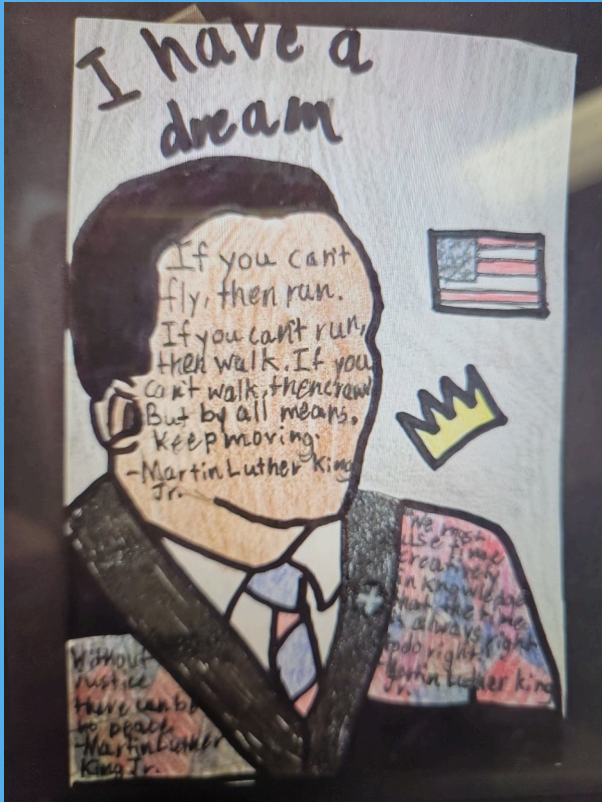 I have a
dream
If you can't
fly, then run.
If you can't run,
then walk. If you
can't walk, then crawl
But by all means,
keep moving.
-Martin Luther King
Jr.
We must
use time
creatively
in knowledge
that the time
is always right
to do right.
-Martin Luther King
Jr.
Without
justice
there can be
no peace
-Martin Luther
King Jr.